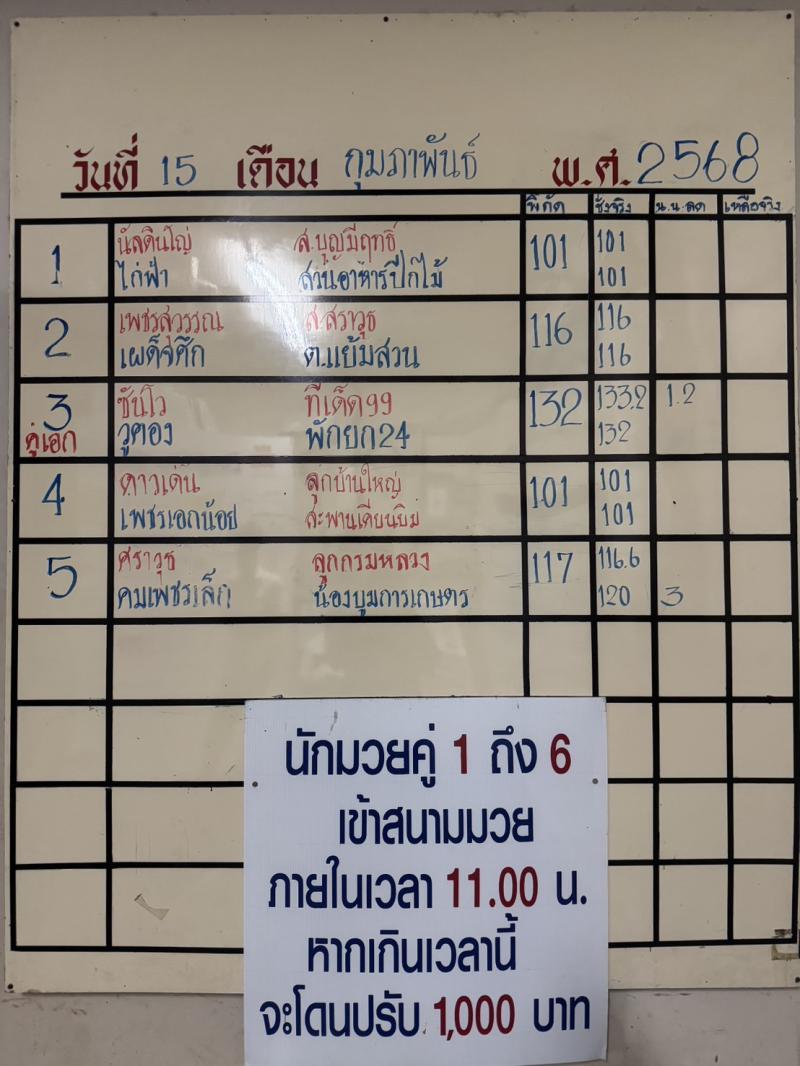 วันที่ 15 เดือน กุมภาพันธ์ พ.ศ. 2568
พิกัด ชั่งจริง น.น.ลด เหลือจริง
1 นัสดินใญ่ ส.บุญมีฤทธิ์ 101 101
ไก่ฟ้า สวนอาหารปีกไม้ 101
2 เพชรสุวรรณ ส.สราวุธ 116 116
เผด็จศึก ต.แย้มสวน 116
3 ซันโว ทีเด็ด99 132 133.2 1.2
คู่เอก วูคอง พักยก24 132
4 ดาวเด่น ลูกบ้านใหญ่ 101 101
เพชรเอกน้อย สะพานเคียนยิม 101
5 ศราวุธ ลูกกรมหลวง 117 116.6
คมเพชรเล็ก น้องบูมการเกษตร 120 3
นักมวยคู่ 1 ถึง 6
เข้าสนามมวย
ภายในเวลา 11.00 น.
หากเกินเวลานี้
จะโดนปรับ 1,000 บาท